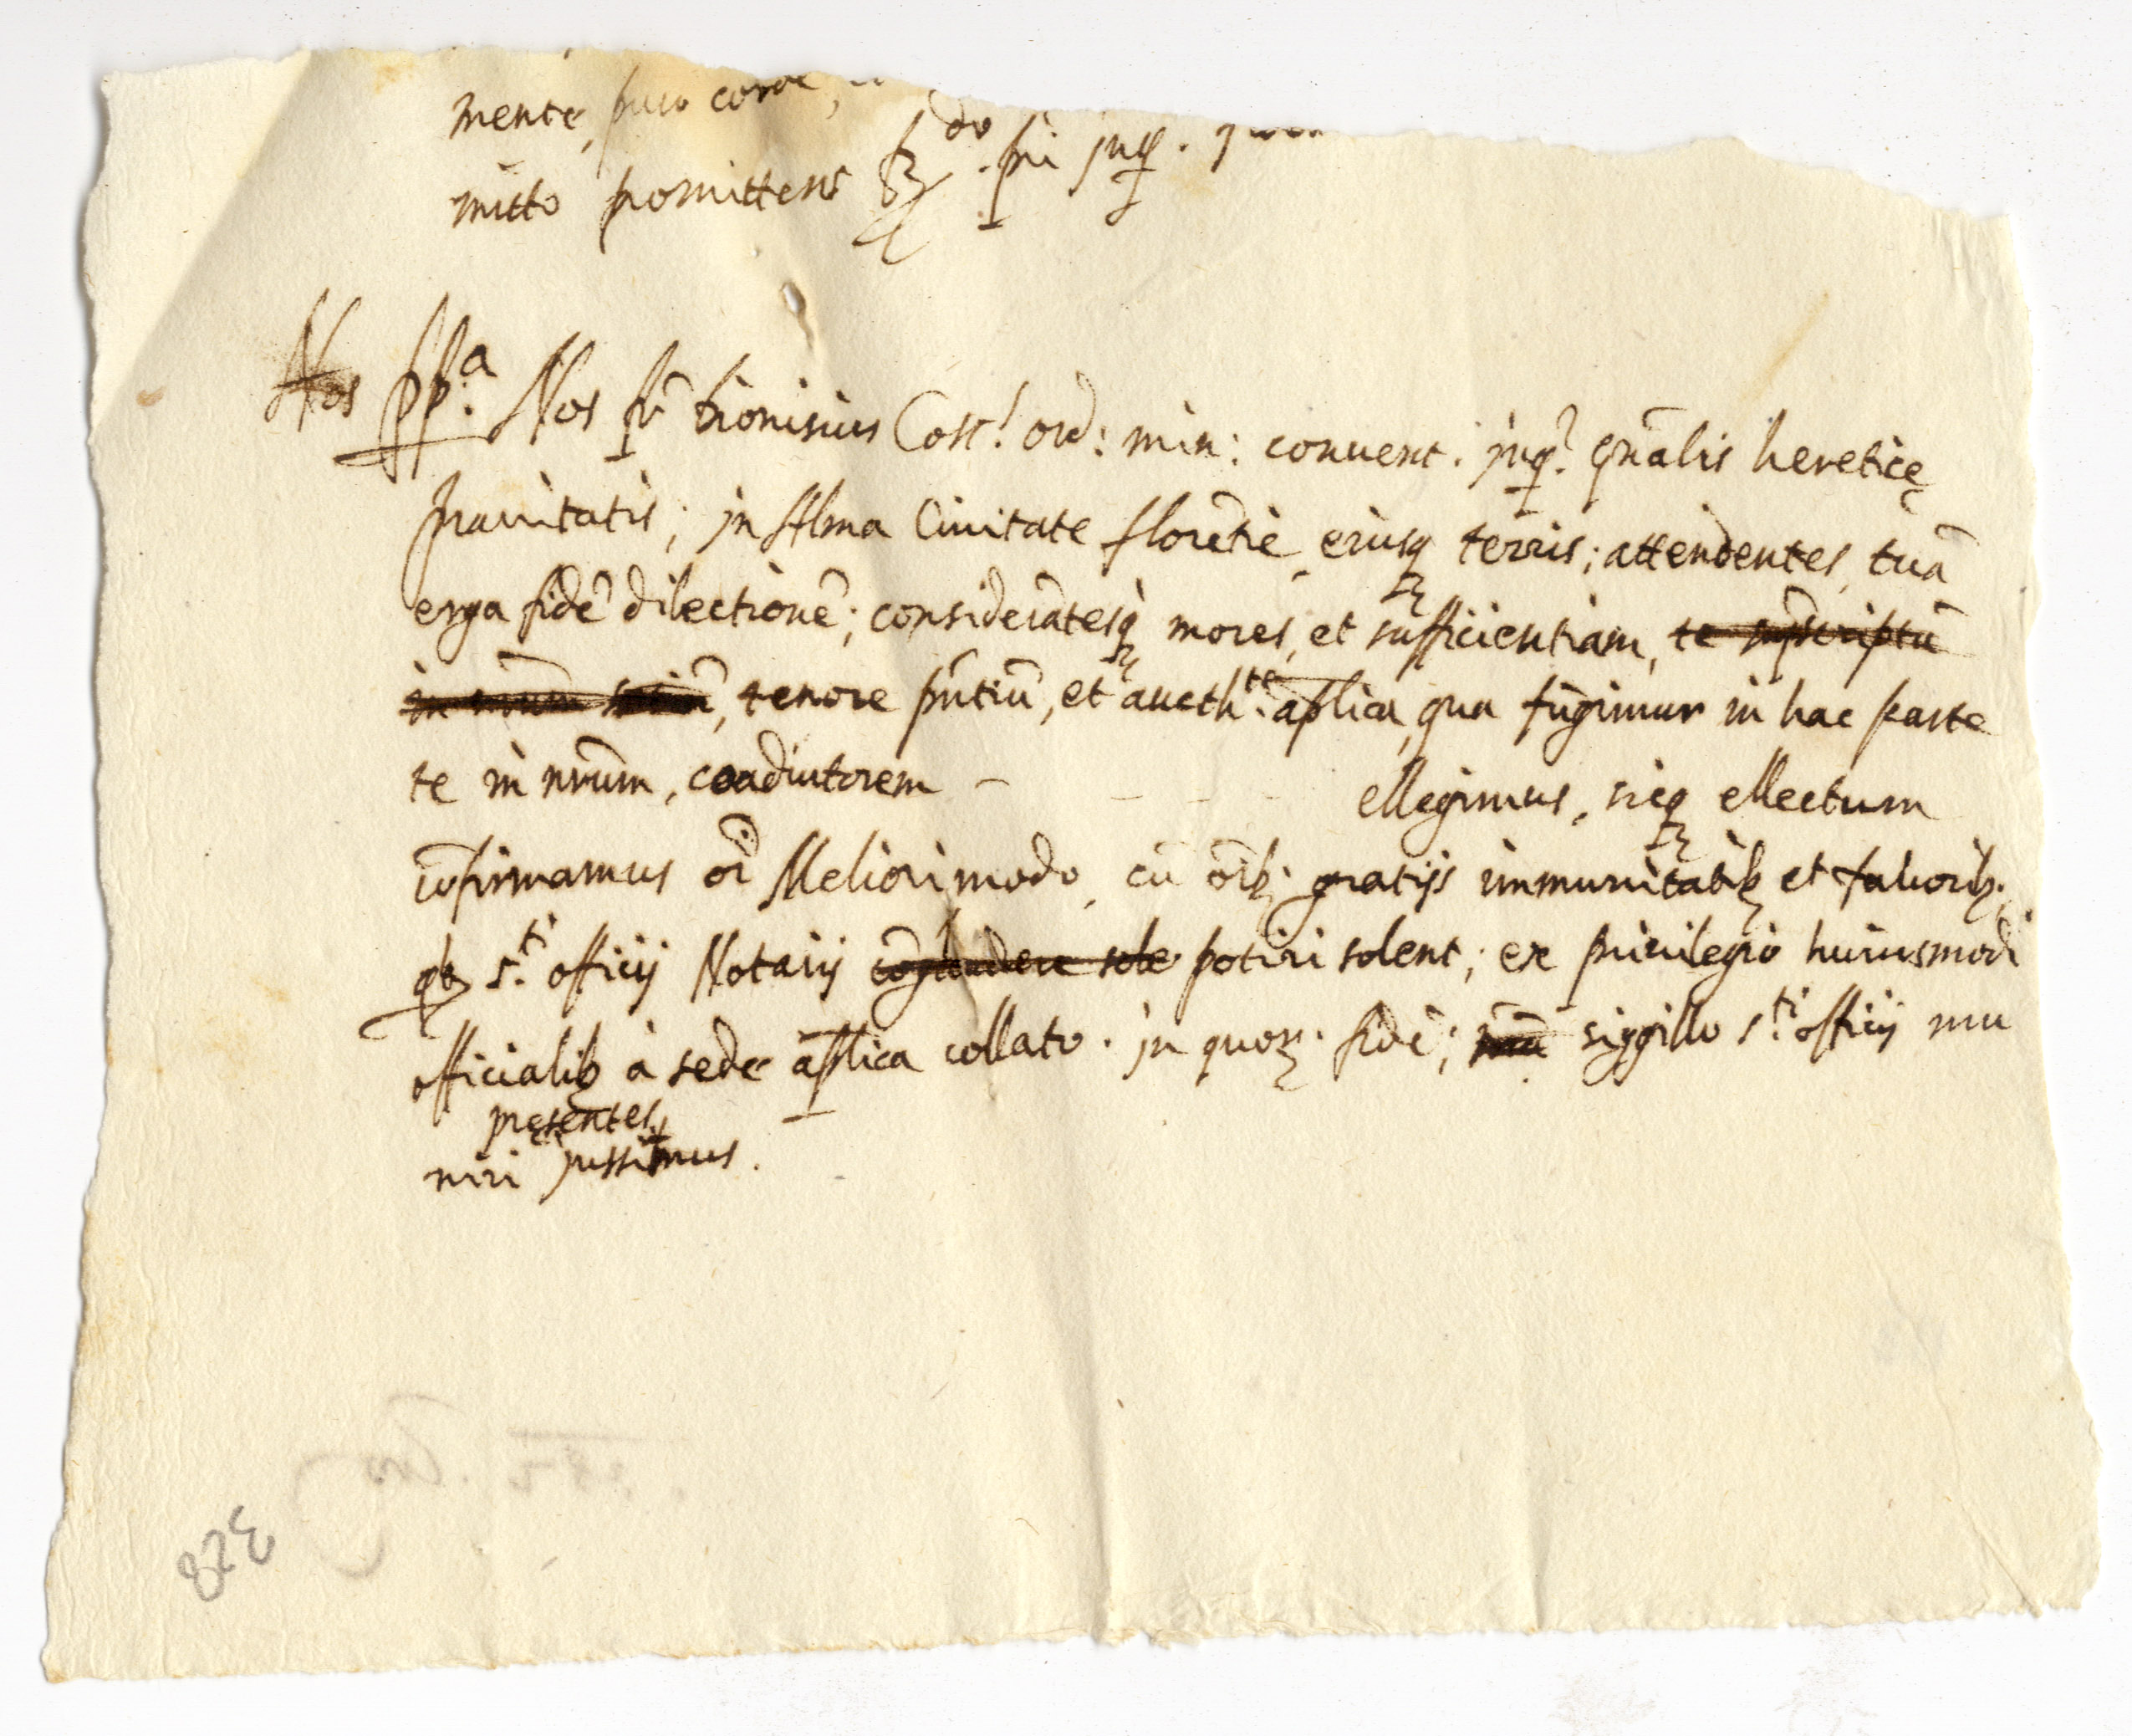 mente, puro corde,
mitto promittens pri jnq.
Nos ppª. Nos fr̃ Dionisius Cost! ord: min: conuent. jnq.r gñalis hereticę
prauitatis; jn Alma Ciuitate florẽtie, eiusq; terris; attendentes, tuã
erga fidẽ dilectionẽ; considerãtesq; mores, et sufficientiam, te supscriptũ
in nrũm, tenore pñtiũ, et aucth.te aplica, qua fũgimur in hac parte
te in nrũm, coadiutorem - - - - ellegimus, sicq; ellectum
cõfirmamus oĩ Meliori modo, cũ oĩb; gratijs immunitatib; et fauorib;
qb; s.ti officij Notarij cõgaudere sole potiri solent; ex priuilegio huiusmodi
officialib; à sede aplica collato. jn quoꝝ. fidẽ; siggillo s.ti officij mu
pręsentes
niri jussimus.
328